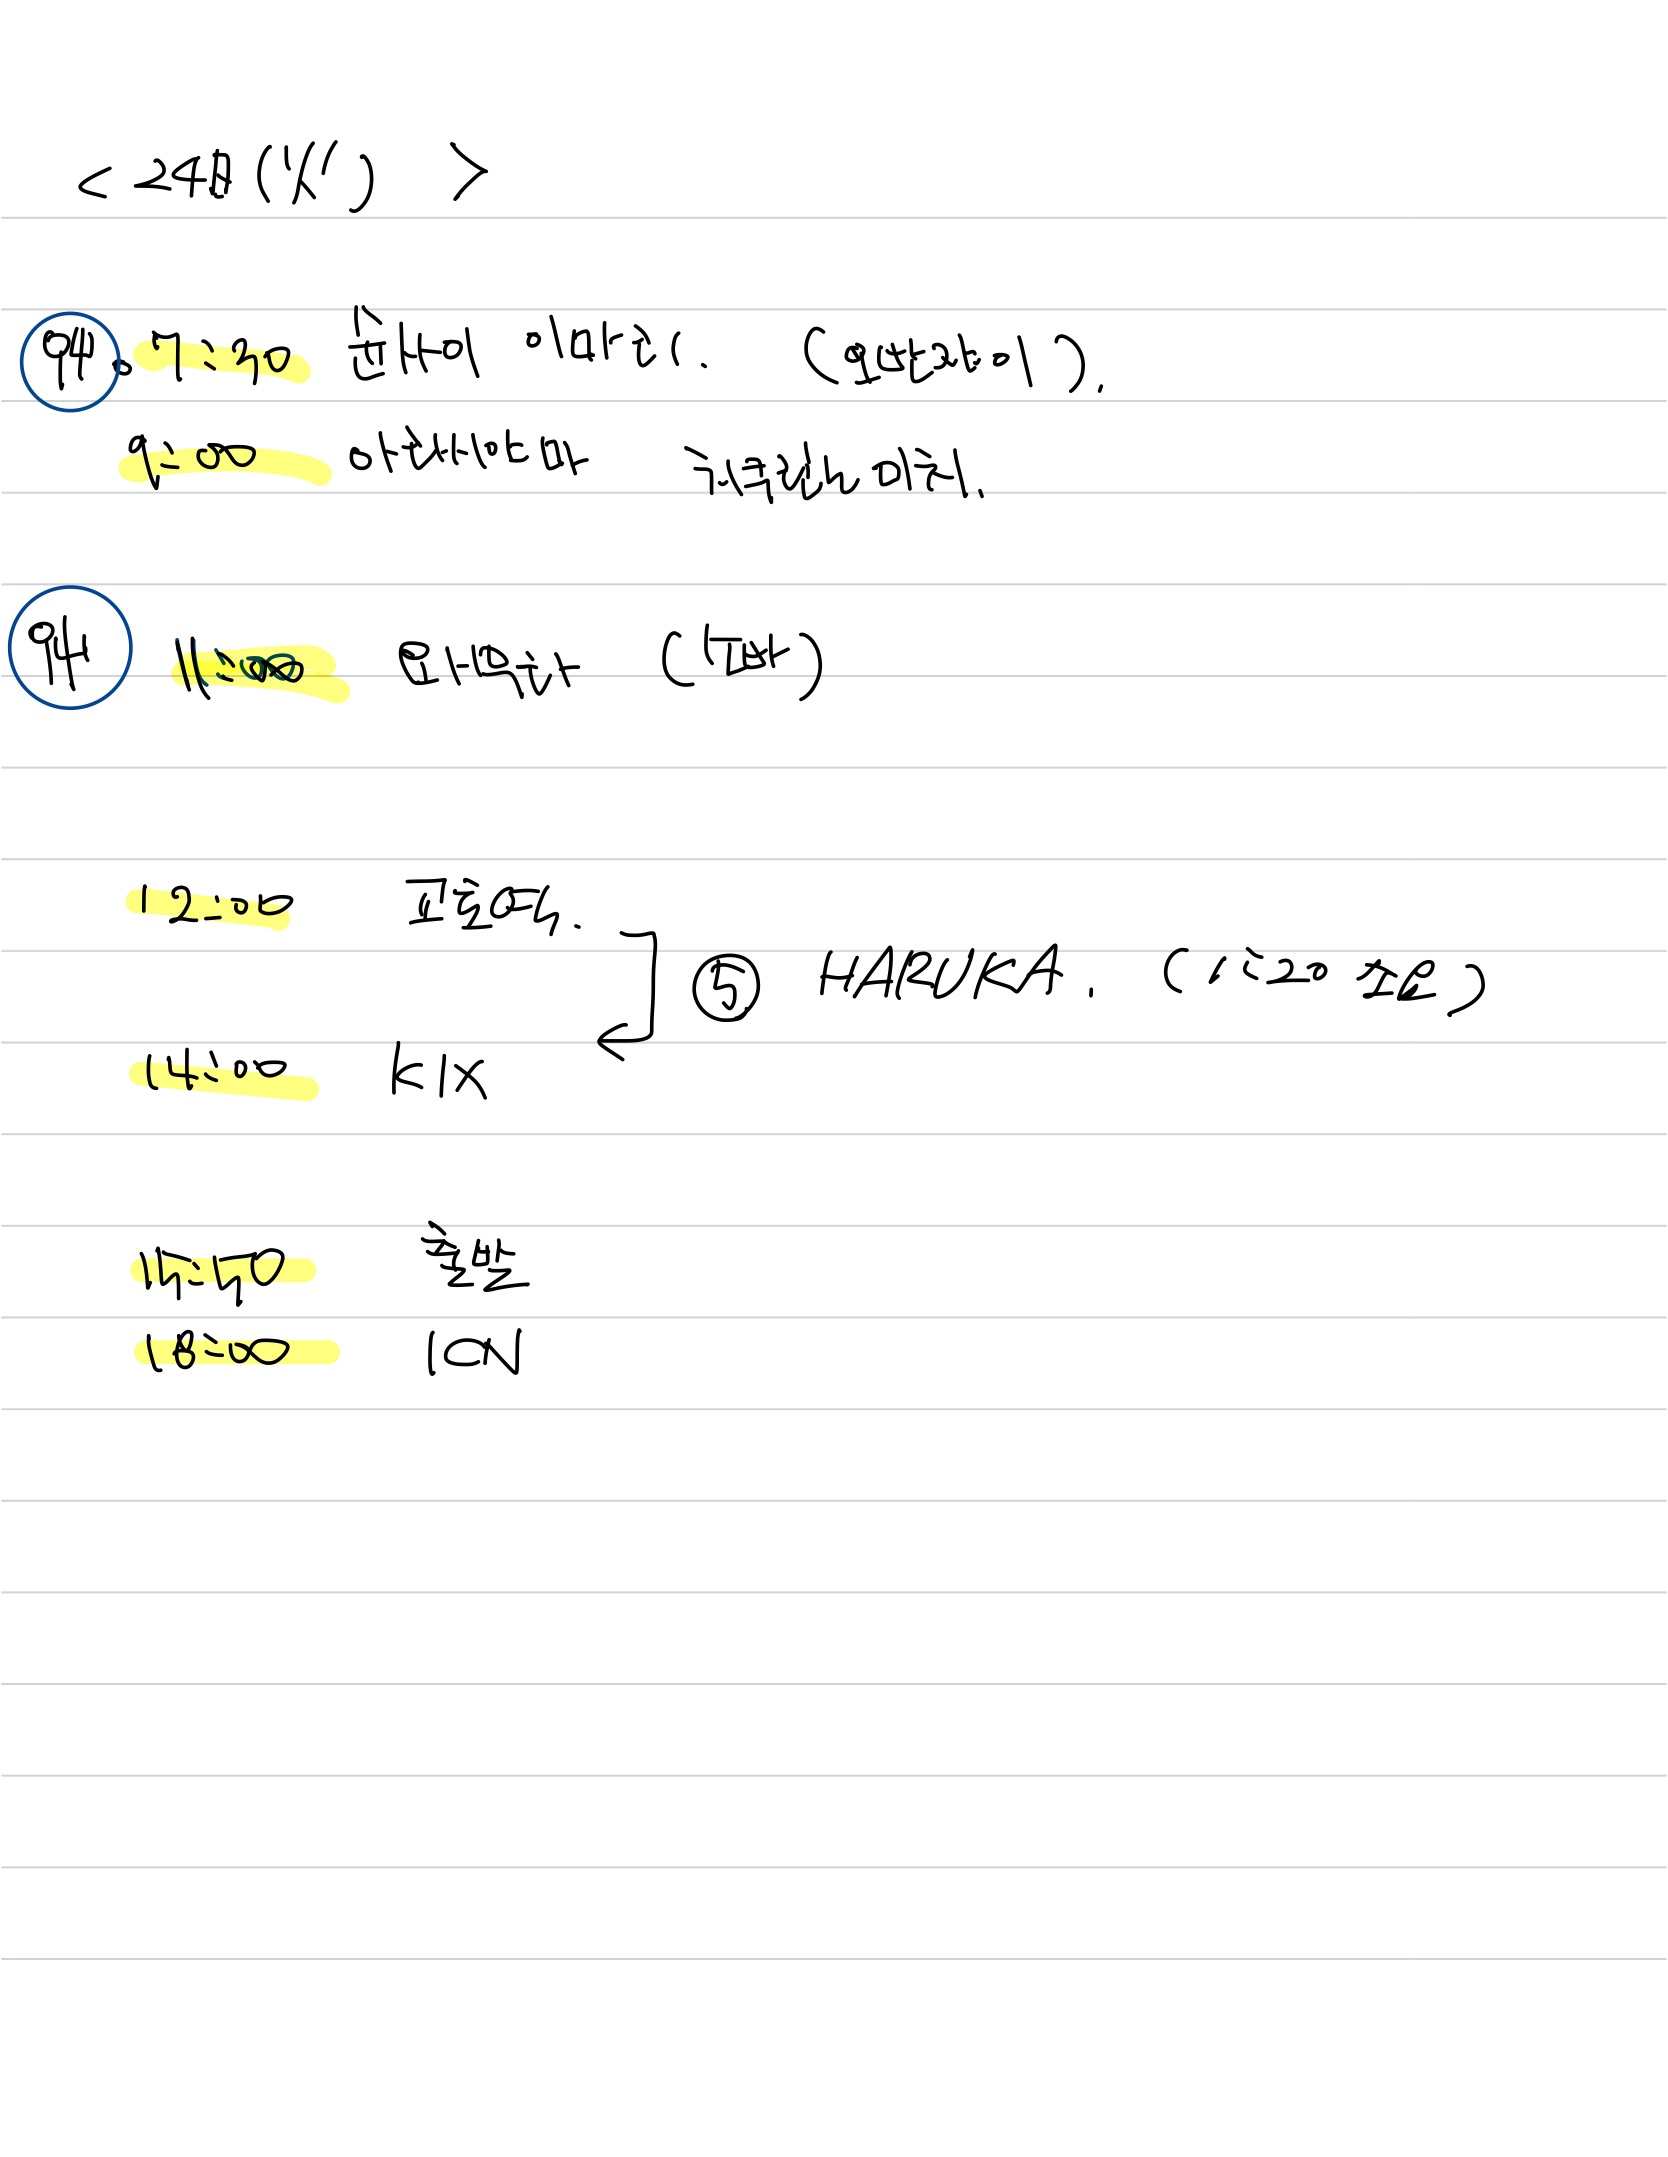 <24日(火)>
94. 7:30 혼사이 이마히. (오반자이).
9:00 아라시야마 치쿠린노미치.
94 11:00 오사무차 (녹차)
12:00 교토역.
⑤ HARUKA. (1:20 소요)
14:00 KIX
15:50 출발
18:00 ICN